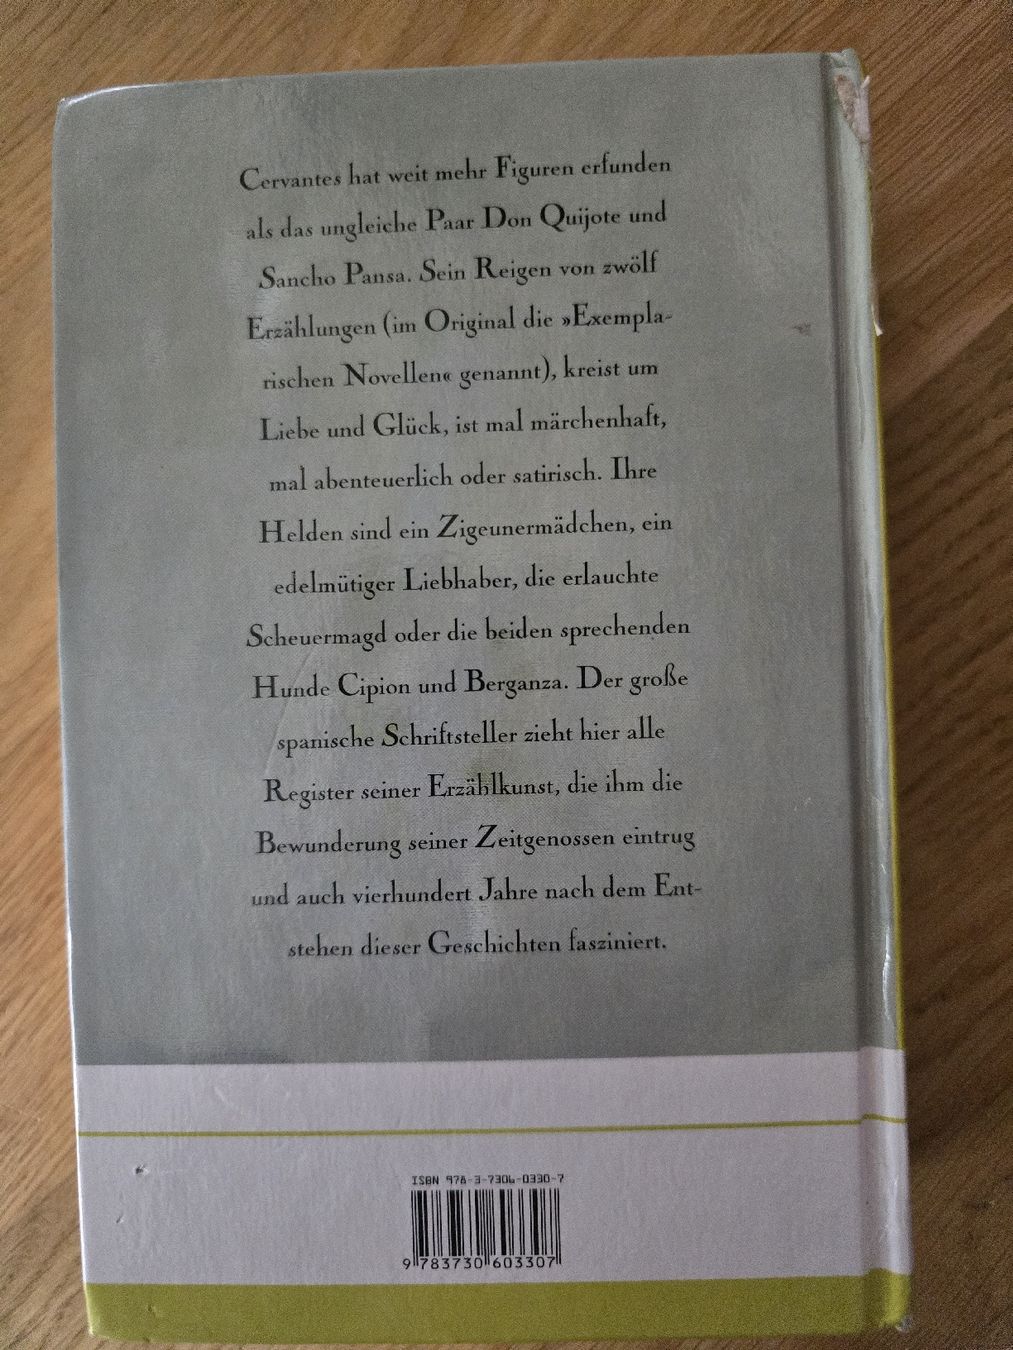 Cervantes hat weit mehr Figuren erfunden
als das ungleiche Paar Don Quijote und
Sancho Pansa. Sein Reigen von zwölf
Erzählungen (im Original die »Exempla-
rischen Novellen« genannt), kreist um
Liebe und Glück, ist mal märchenhaft,
mal abenteuerlich oder satirisch. Ihre
Helden sind ein Zigeunermädchen, ein
edelmütiger Liebhaber, die erlauchte
Scheuermagd oder die beiden sprechenden
Hunde Cipion und Berganza. Der große
spanische Schriftsteller zieht hier alle
Register seiner Erzählkunst, die ihm die
Bewunderung seiner Zeitgenossen eintrug
und auch vierhundert Jahre nach dem Ent-
stehen dieser Geschichten fasziniert.
ISBN 978-3-7306-0330-7
9 783730 603307